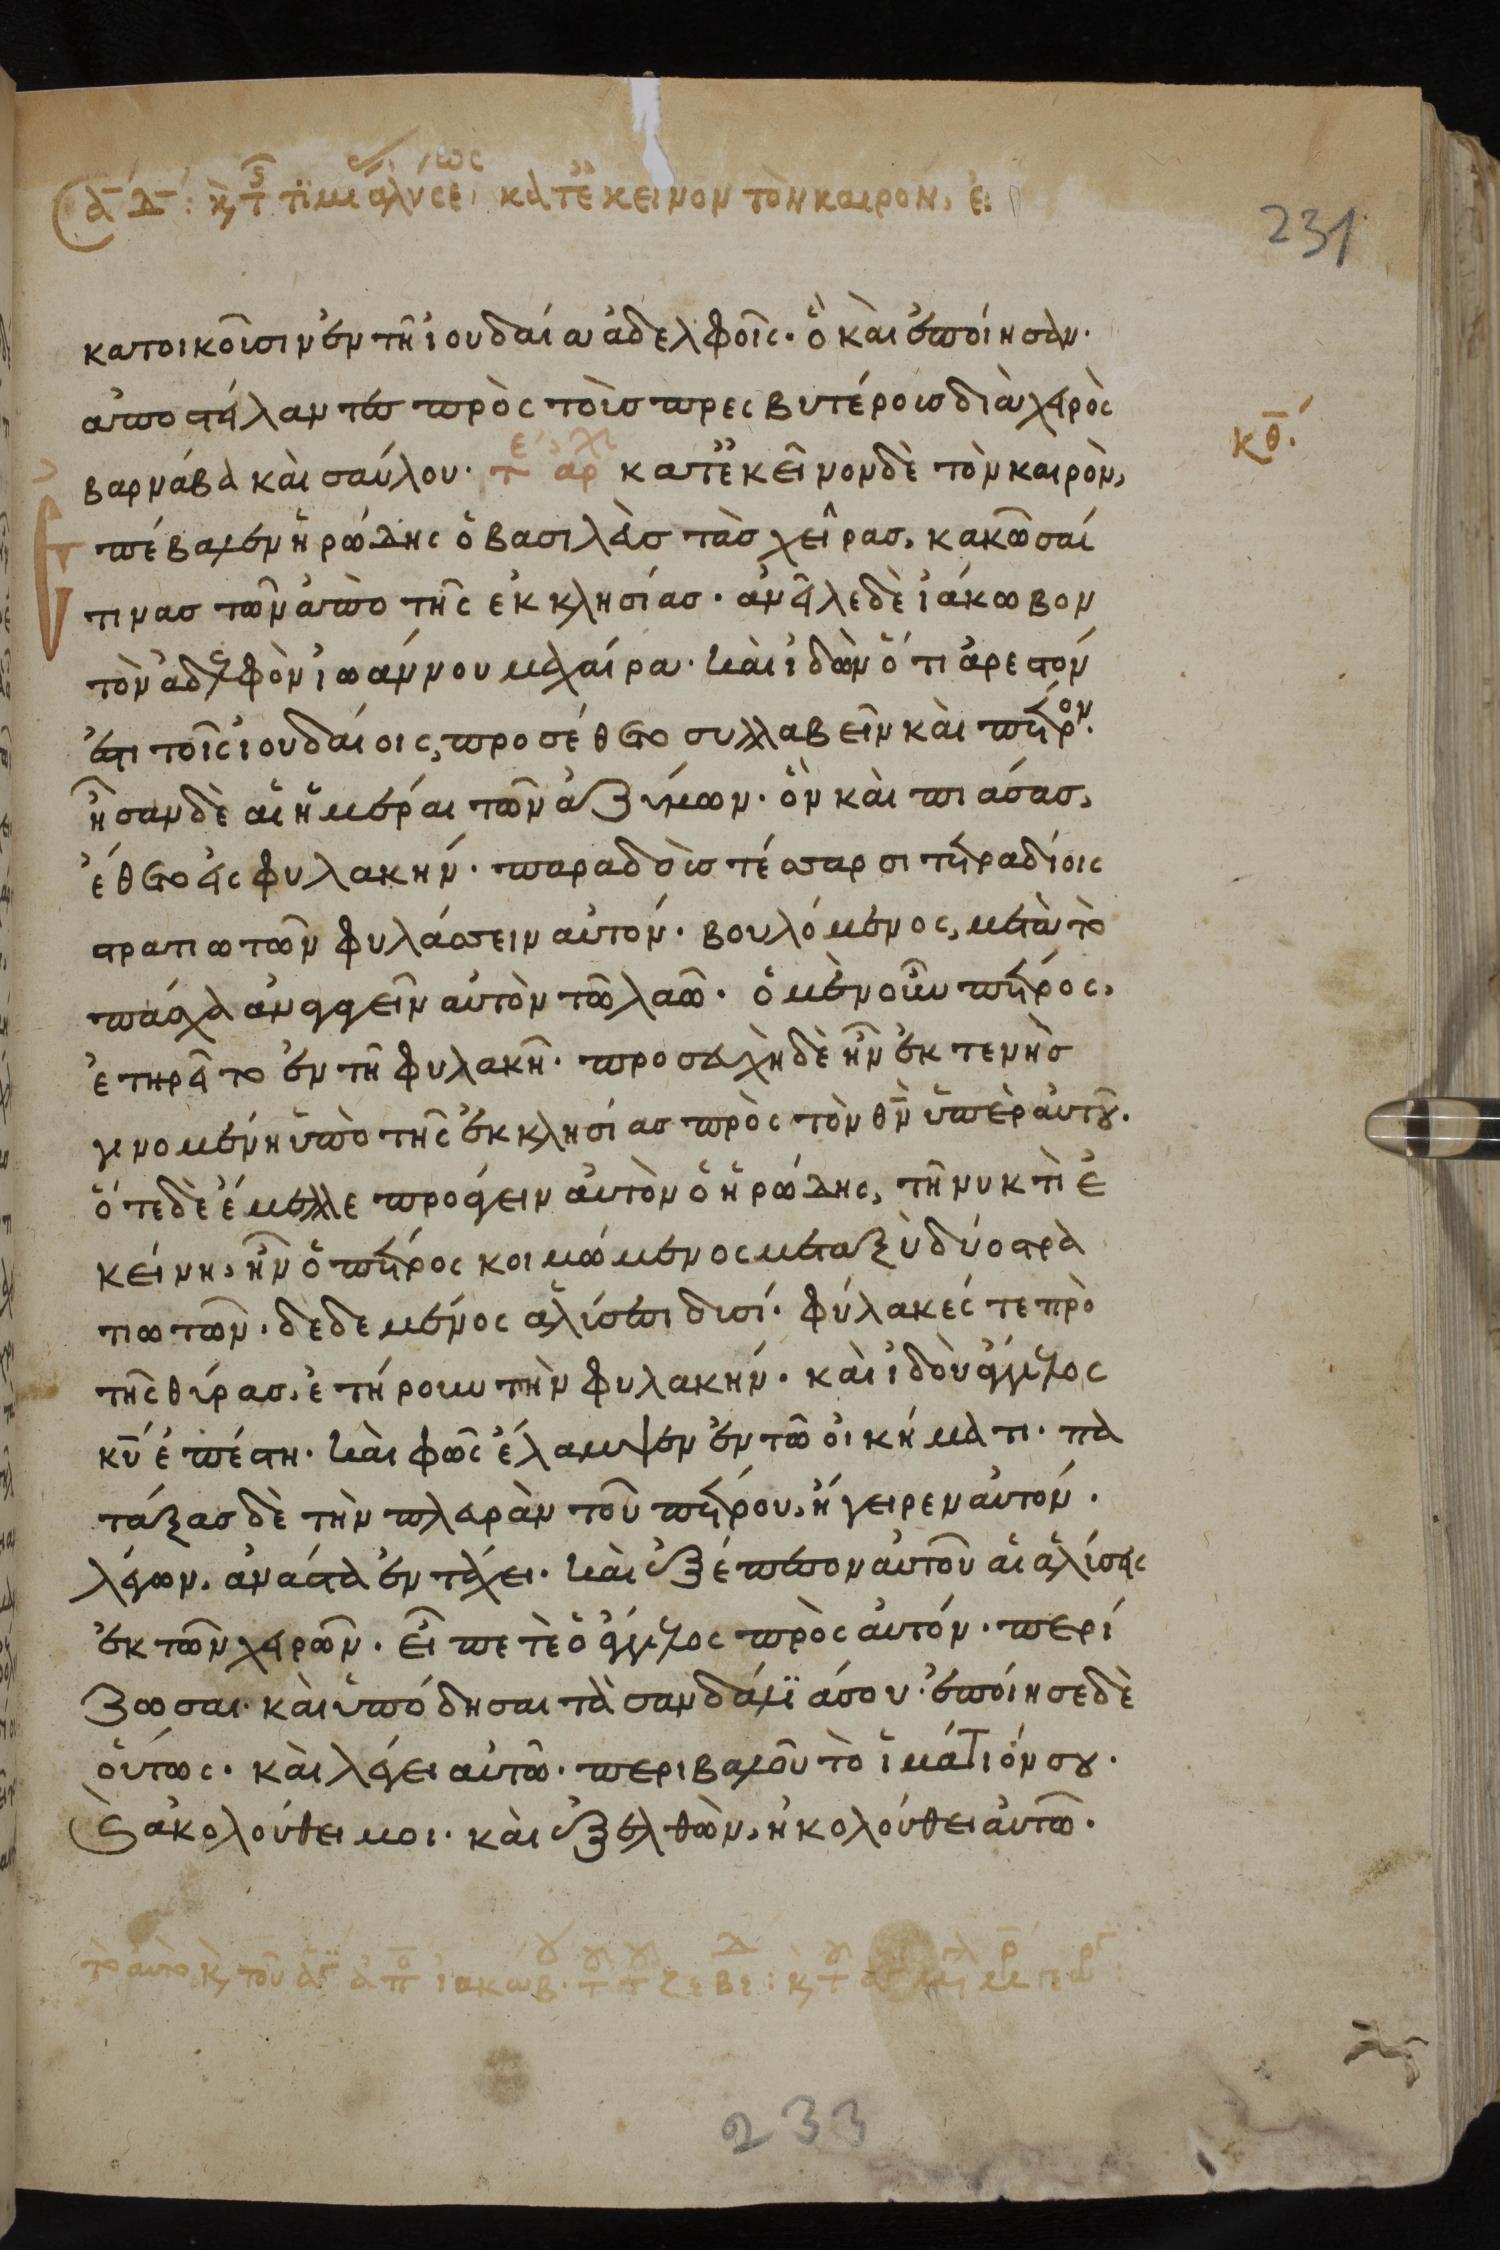 κατ' ἐκεῖνον τὸν καιρόν, ἐ
231
κατοικοῦσιν ἐν τῆ ἰουδαία ἀδελφοῖς· ὃ καὶ ἐποίησαν·
ἀποστείλαντες πρὸς τοὺς πρεσβυτέρους διὰ χειρὸς
κθ.
βαρνάβα καὶ σαύλου· κατ' ἐκεῖνον δὲ τὸν καιρὸν,
ἐπέβαλεν ἡρώδης ὁ βασιλεὺς τὰς χεῖρας, κακῶσαί
τινας τῶν ἀπὸ τῆς ἐκκλησίας· ἀνεῖλε δὲ ἰάκωβον
τὸν ἀδελφὸν ἰωάννου μαχαίρα· καὶ ἰδὼν ὅτι ἀρεστόν
ἐστι τοῖς ἰουδαίοις, προσέθετο συλλαβεῖν καὶ πέτρον·
ἦσαν δὲ αἱ ἡμέραι τῶν ἀζύμων· ὃν καὶ πιάσας,
ἔθετο εἰς φυλακήν· παραδοὺς τέσσαρσι τετραδίοις
στρατιωτῶν φυλάσσειν αὐτόν· βουλόμενος, μετὰ τὸ
πάσχα ἀναγαγεῖν αὐτὸν τῶ λαῶ· ὁ μὲν οὖν πέτρος,
ἐτηρεῖτο ἐν τῆ φυλακῆ· προσευχὴ δὲ ἦν ἐκτενὴς
γινομένη ὑπὸ τῆς ἐκκλησίας πρὸς τὸν θν ὑπὲρ αὐτοῦ.
ὅτε δὲ ἔμελλε προάγειν αὐτὸν ὁ ἡρώδης, τῆ νυκτὶ ἐ
κείνη, ἦν ὁ πέτρος κοιμώμενος μεταξὺ δύο στρα
τιωτῶν· δεδεμένος ἁλύσεσι δυσί· φύλακές τε πρὸ
τῆς θύρας, ἐτήρουν τὴν φυλακήν· καὶ ἰδοὺ ἄγγελος
κυ ἐπέστη· καὶ φῶς ἔλαμψεν ἐν τῶ οἰκήματι· πα
τάξας δὲ τὴν πλευρὰν τοῦ πέτρου, ἤγειρεν αὐτόν·
λέγων, ἀνάστα ἐν τάχει· καὶ ἐξέπεσον αὐτοῦ αἱ ἁλύσεις
ἐκ τῶν χειρῶν· εἶπέ τε ὁ ἄγγελος πρὸς αὐτόν· περί
ζωσαι· καὶ ὑπόδησαι τὰ σανδάλϊά σου· ἐποίησε δὲ
οὕτως· καὶ λέγει αὐτῶ· περιβαλοῦ τὸ ἱμάτιόν σου·
καὶ ἀκολούθει μοι· καὶ ἐξελθὼν, ἠκολούθει αὐτῶ·
233